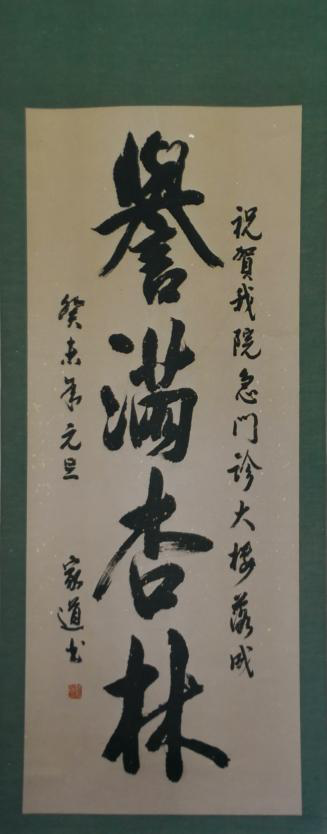 祝賀我院急门诊大楼落成
譽滿杏林
癸未年元旦 家道书